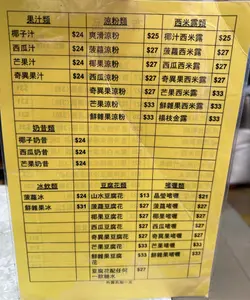 果汁類
椰子汁 $24
西瓜汁 $24
芒果汁 $24
奇異果汁 $24
涼粉類
爽滑涼粉 $25
菠蘿涼粉 $27
椰果涼粉 $27
西瓜涼粉 $27
奇異果涼粉 $27
芒果涼粉 $33
鮮雜果涼粉 $33
西米露類
椰汁西米露 $25
菠蘿西米露 $27
西瓜西米露 $27
奇異果西米露 $27
芒果西米露 $33
鮮雜果西米露 $33
楊枝金露 $33
奶昔類
椰子奶昔 $24
西瓜奶昔 $24
芒果奶昔 $24
冰飲類
菠蘿冰 $24
鮮雜果冰 $31
豆腐花類
山水豆腐花 $13
菠蘿豆腐花 $27
椰果豆腐花 $27
西瓜豆腐花 $27
奇異果豆腐花 $27
芒果豆腐花 $33
鮮雜果豆腐花 $33
豆腐花配任何 $27
啫喱類
晶瑩啫喱 $21
菠蘿啫喱 $27
椰果啫喱 $27
西瓜啫喱 $27
奇異果啫喱 $27
芒果啫喱 $33
鮮雜果啫喱 $33